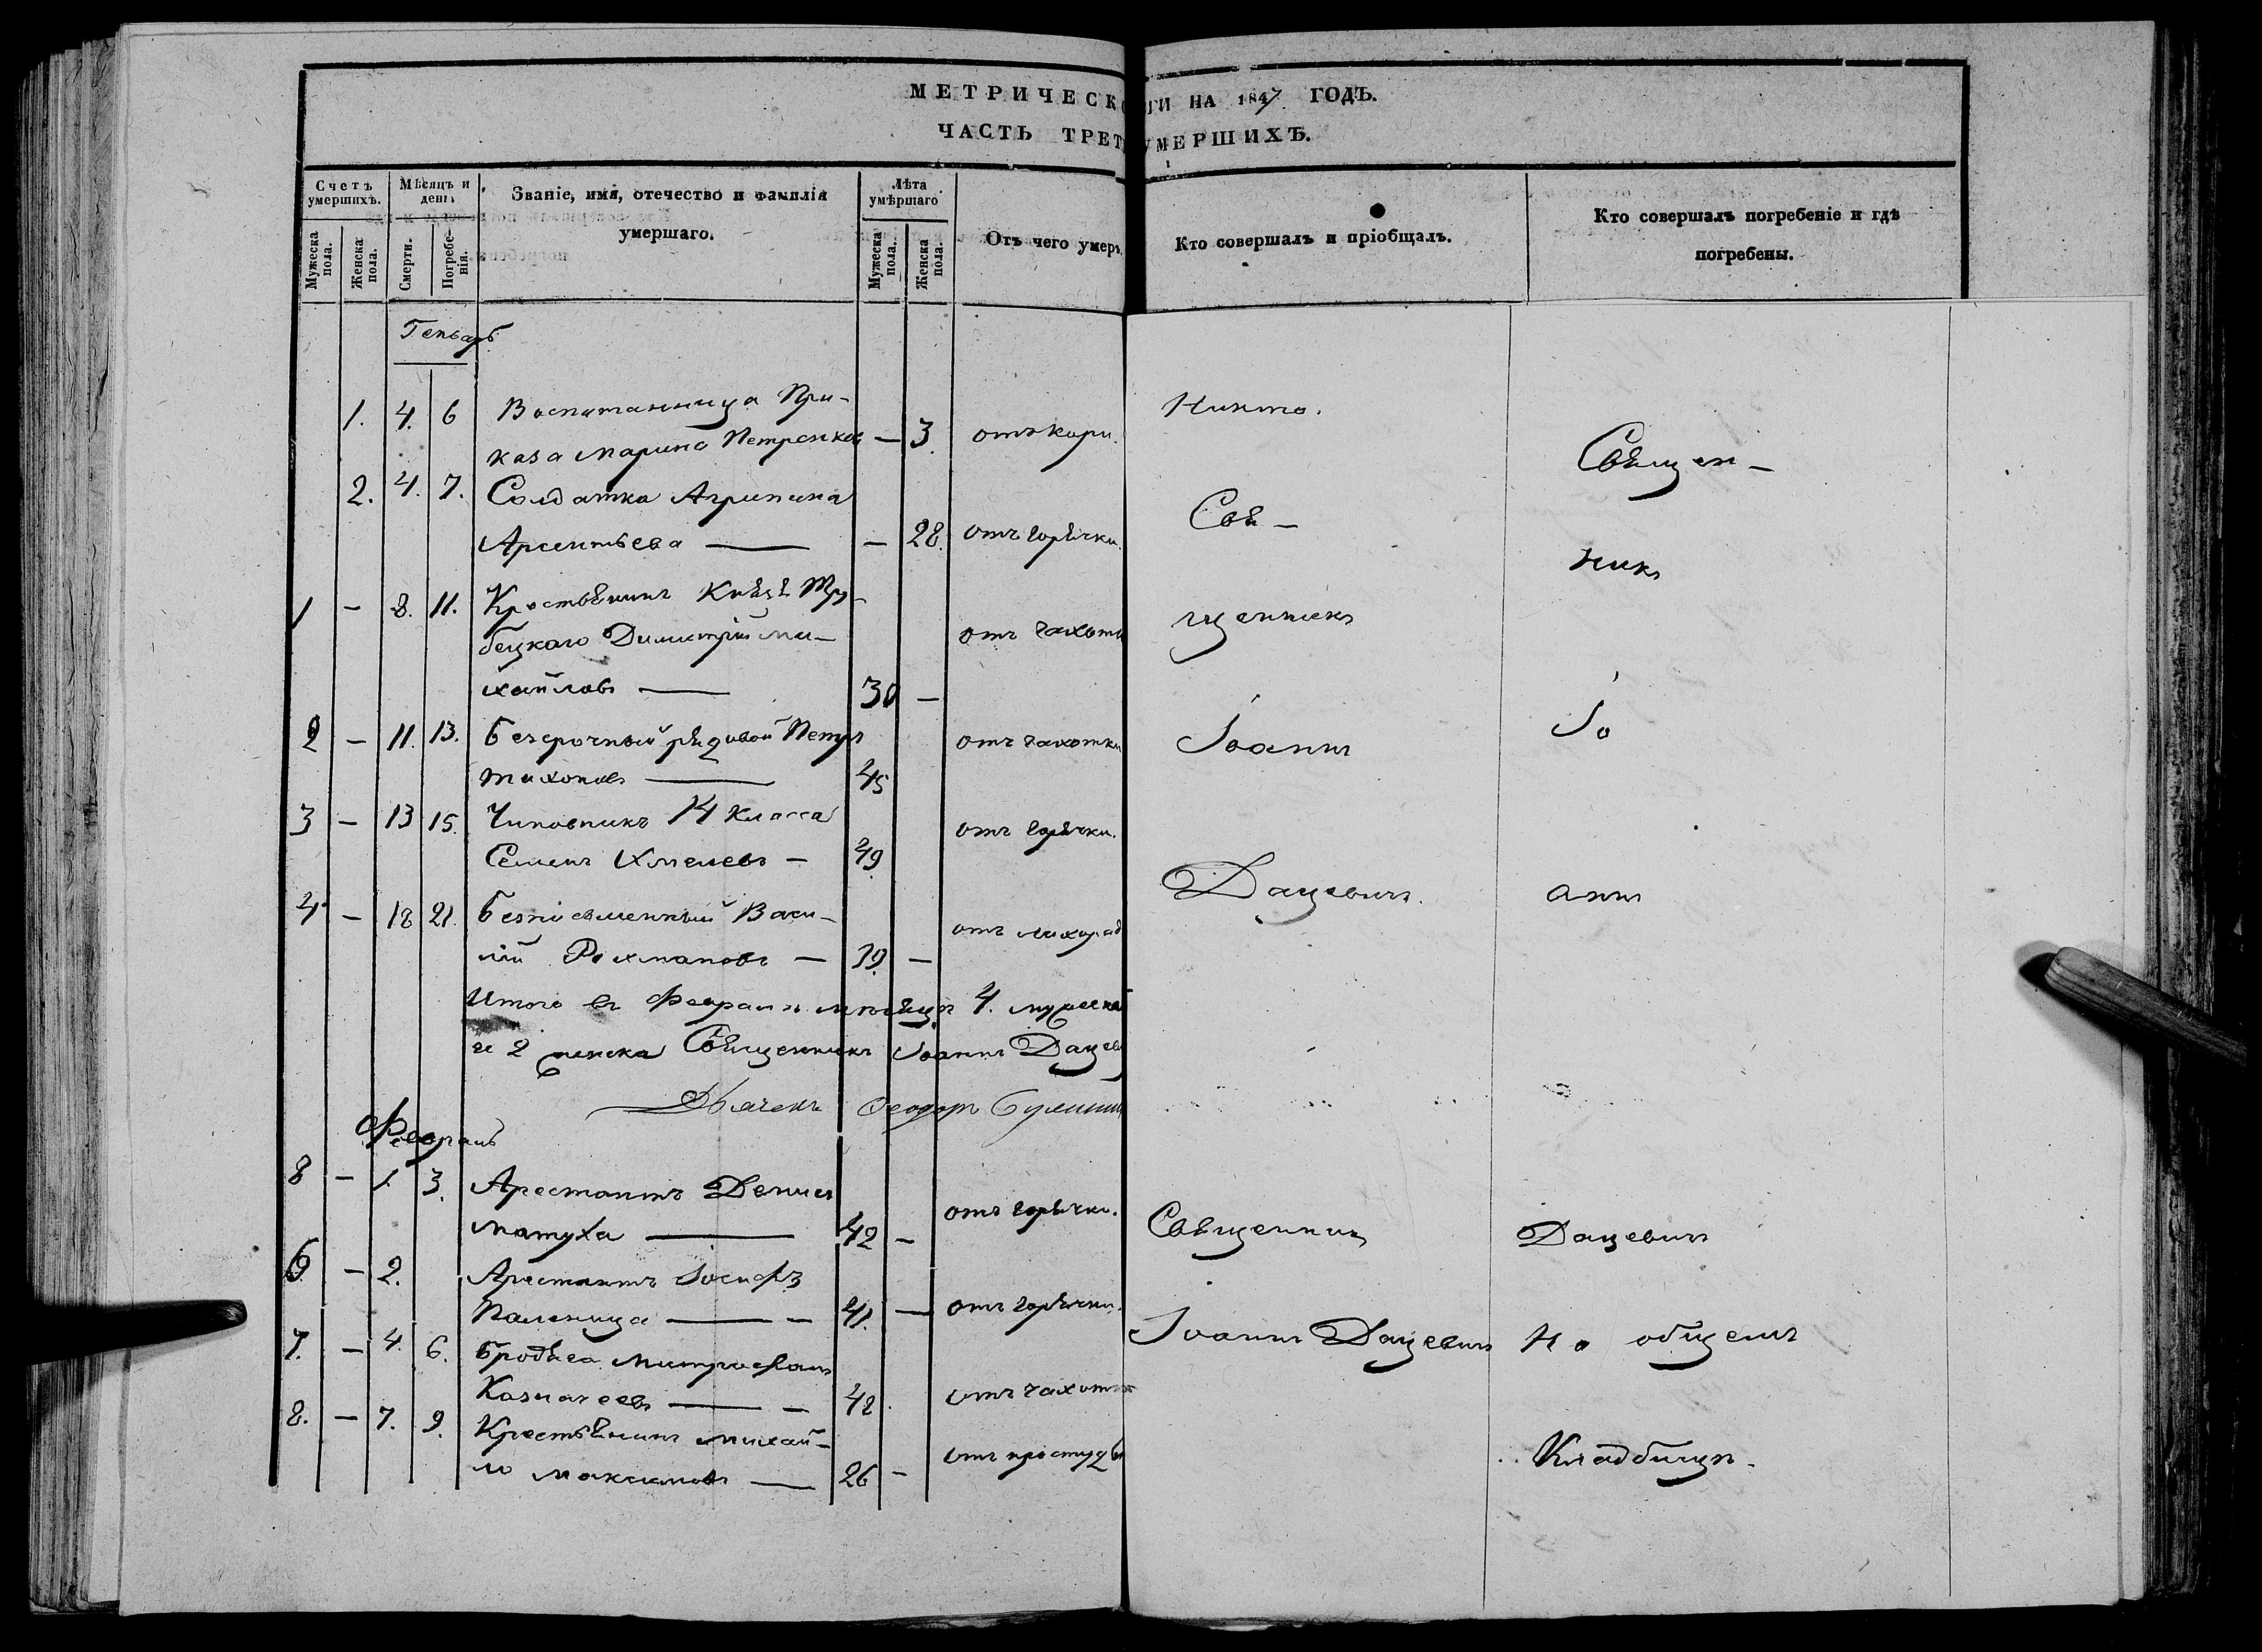 МЕТРИЧЕСКО ГИ НА 1847 ГОДЪ.
ЧАСТЬ ТРЕТ УМЕРШИХЪ.
Счетъ умершихъ.
Мужеска пола.
Женска пола.
Мѣсяцъ и день
Смерти.
Погребе-нія.
Званіе, имя, отечество и фамилія
умершаго.
Лѣта умѣршаго
Мужеска пола.
Женска пола.
Отъ чего умеръ
Кто совершалъ и пріобщалъ.
Кто совершалъ погребеніе и гдѣ
погребены.
Генварь
1. 4. 6 Воспитанница При-
каза Марина Петренков — 3. отъ кори.
Никто.
2. 4. 7. Солдатка Агрипина
Арсентьева — — 28. отъ горячки.
1 — 8. 11. Крестьянинъ Князя Тру-
бецкаго Димитрій Ми-
отъ чахотк
хайловъ — 30 —
2 — 11. 13. Безсрочный рядовой Петръ
отъ чахотки
Тихоновъ — 45
3 — 13 15. Чиновникъ 14 класса
отъ горячки.
Семенъ Хмелевъ — 49.
4 — 18 21. Безписьменный Васи-
отъ лихорад
лій Рохмановъ — 39. —
Свя-
щенникъ
Іоаннъ
Дацевичъ.
Священ-
никъ
Іо
аннъ
Итого въ Феврал мѣсяцѣ 4. мужеска
и 2 женска Священникъ Іоаннъ Дацев
Дьячекъ Феодоръ
Февраль
8 — 1. 3. Арестантъ Денисъ
отъ горячки.
Матуха — 42 —
6 — 2. Арестантъ Іосифъ
Паленица — — 41. — отъ горячки.
7. — 4. 6. Бродяга Митрофанъ
Казначеевъ — — 42 отъ чахотк
8. — 7. 9. Крестьянинъ Михай-
отъ простуды
ло Максимовъ — 26 —
Священникъ
Іоаннъ Дацевичъ
Дацевичъ
На общемъ
Кладбищѣ.